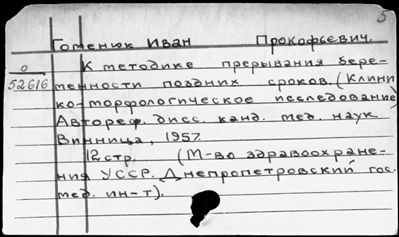 5
Гоменюк Иван Прокофьевич.
О К методике прерывания бере-
52616 менности поздних сроков. (Клини
ко-морфологическое исследование)
Автореф. дисс. канд. мед. наук
Винница, 1957.
12 стр. (М-во здравоохране-
ния УССР. Днепропетровский гос.
мед. ин-т).